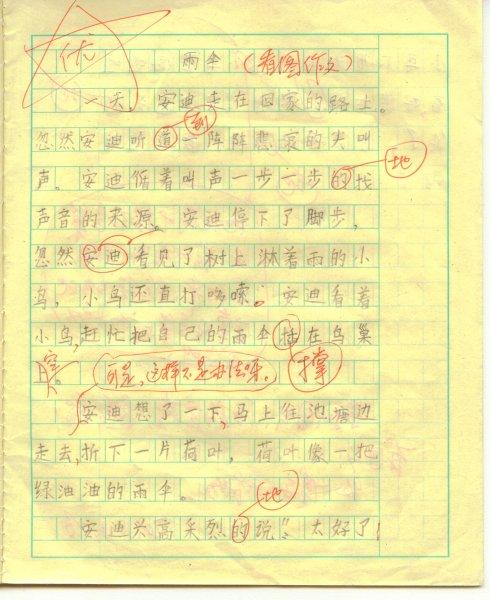 优
雨伞（看图作文）
一天。安迪走在回家的路上。
到
忽然安迪听道一阵阵悲哀的尖叫
地
声。安迪循着叫声一步一步的找
声音的来源。安迪停下了脚步，
忽然安迪看见了树上淋着雨的小
鸟，小鸟还直打哆嗦。安迪看着
小鸟，赶忙把自己的雨伞插在鸟巢
（可是，这样不是办法呀。）撑
安迪想了一下，马上往池塘边
走去，折下一片荷叶，荷叶像一把
绿油油的雨伞。
地
安迪兴高采烈的说“太好了！